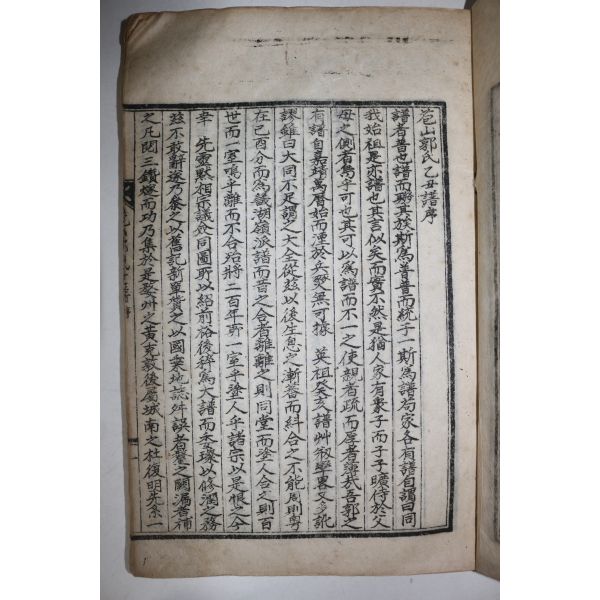 苞山郭氏乙丑譜序
譜者普也譜而聯其族斯為普普而統于一斯為譜苟家各有譜自謂曰同
我始祖是亦譜也其言似矣而實不然是猶人家有衆子而子子曠待於父
母之側者焉乎可也其可以為譜而不一之使親者疏而厚者薄哉吾郭之
有譜自嘉靖萬曆始而湮於兵燹無可據 英祖癸亥譜艸叔學畧又多訛
謬雖曰大同不足謂之大全從玆以後生息之漸蕃而糾合之不能周則粤
在己酉分而為鐵湖嶺派譜而昔之合者離離之則同堂而塗人合之則百
世而一室嗚乎離而不合殆將二百年耶一室乎塗人乎諸宗以是恨之今
幸 先靈黙相宗議僉同圖所以紹前裕後釋為大譜而委璨以修潤之務
玆不敢辭遂乃參之以舊記新單質之以國乘地誌舛誤者釐之闕漏者補
之凡閱三鑽燧而功乃集於是婺州之黄克敬後屬城南之杜復明先系一